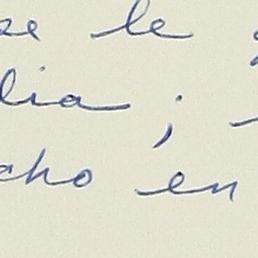 se le
lia ;
cho en